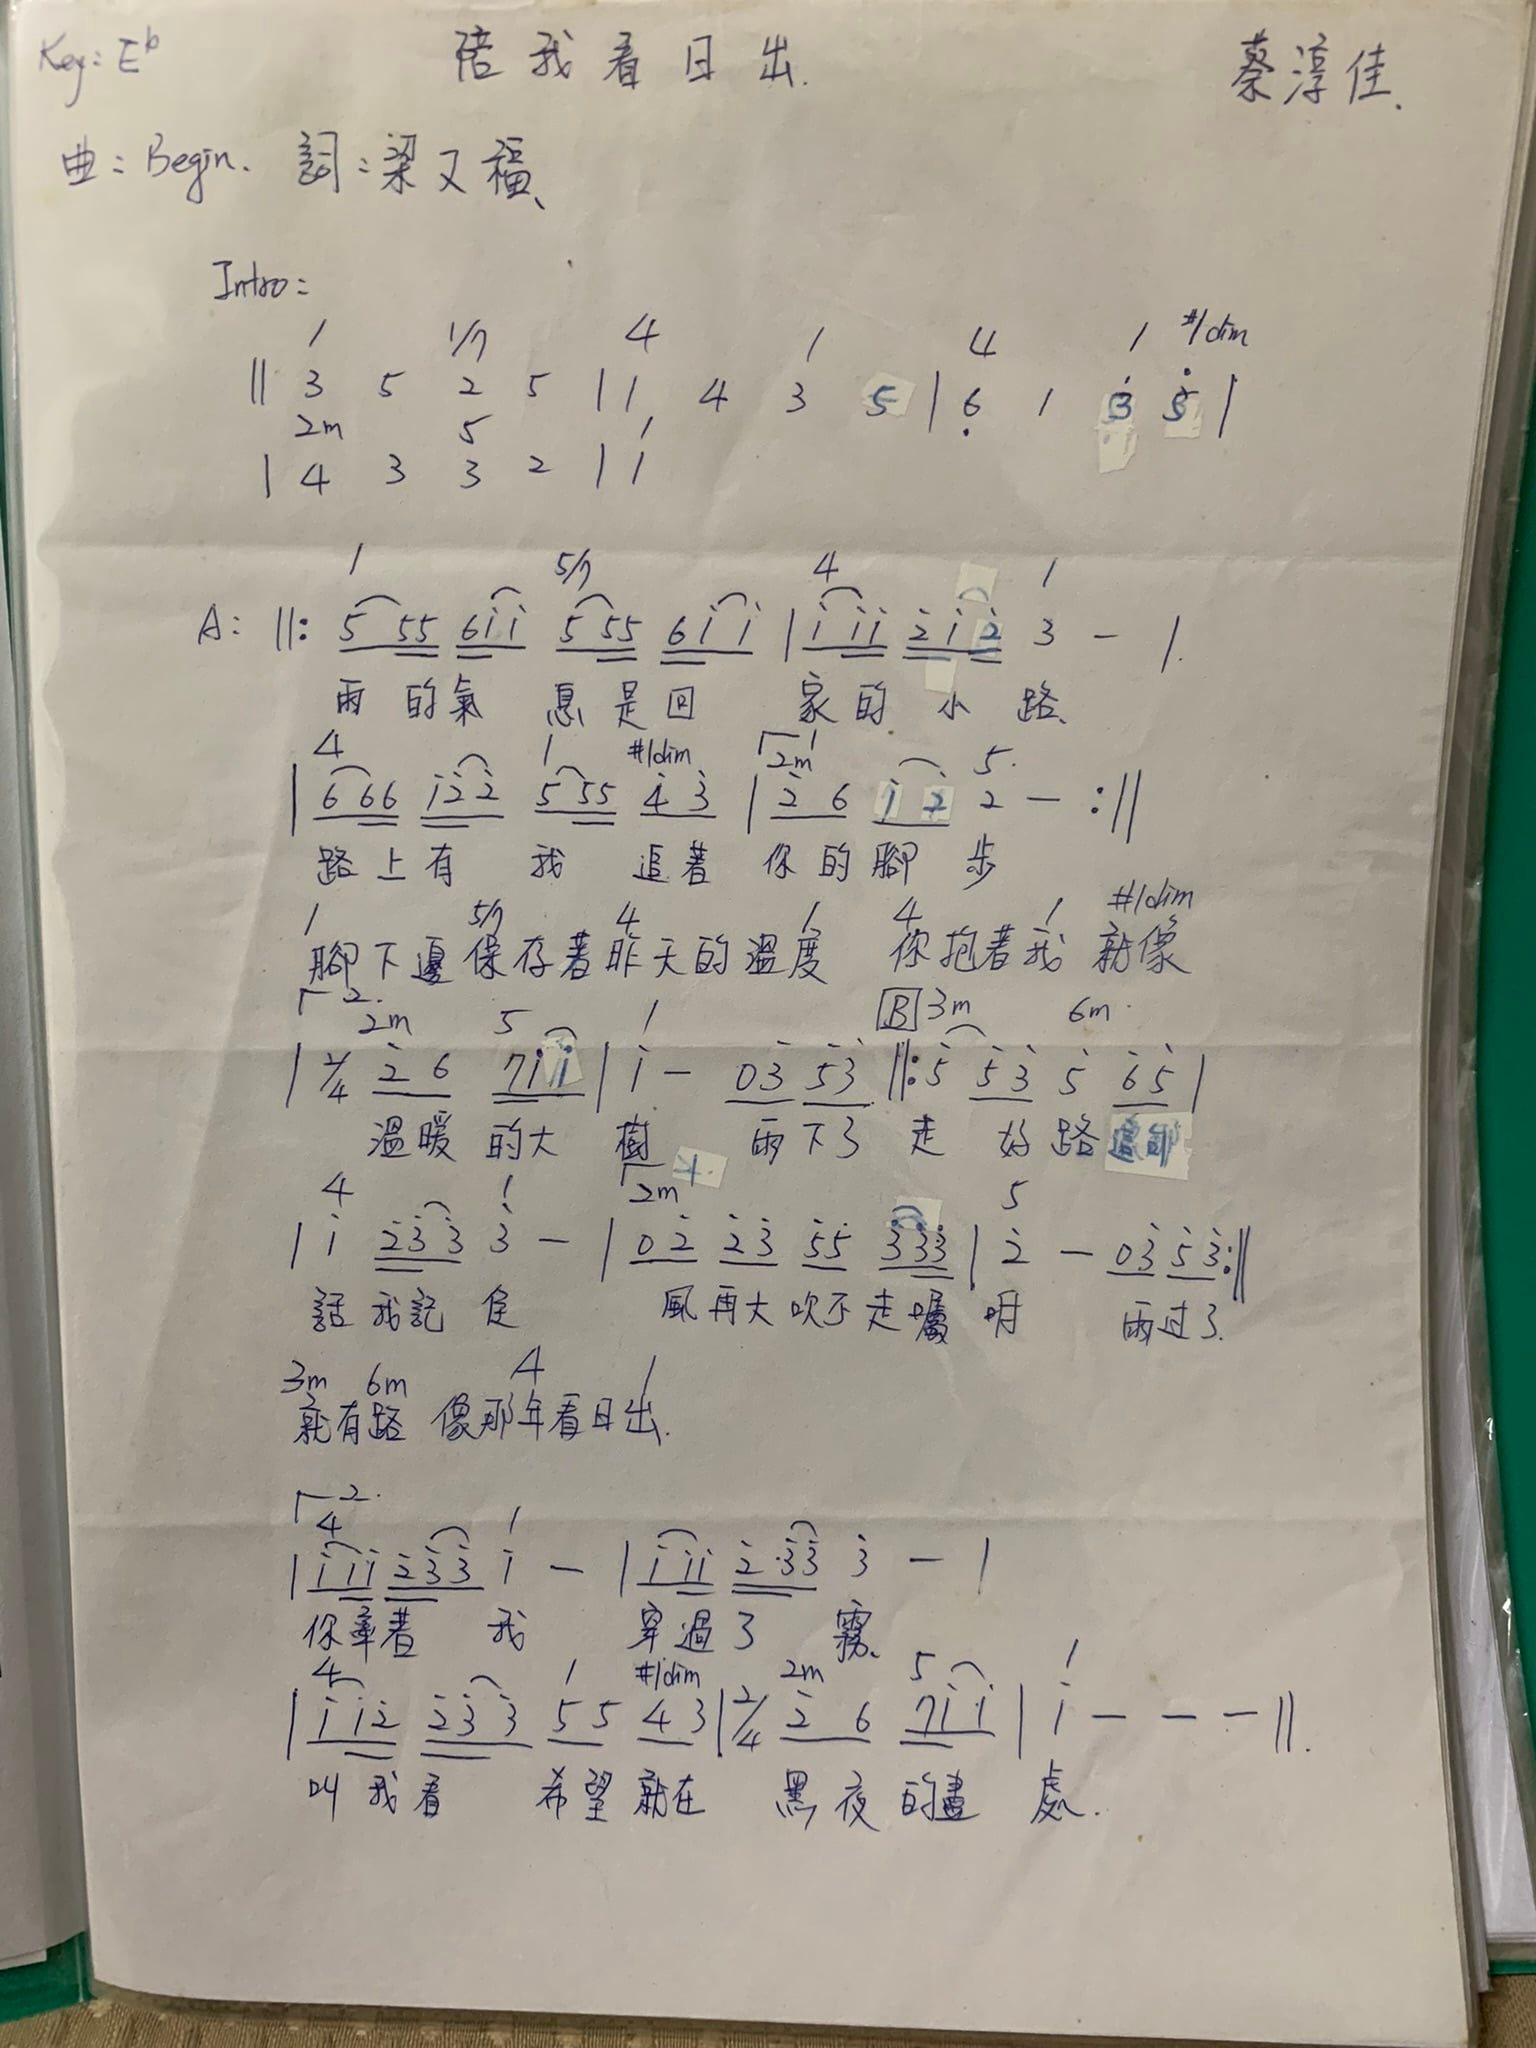 Key: E♭ 陪我看日出. 蔡淳佳.
曲: Begin. 詞: 梁文福、
Intro:
1 1/7 4 1 4 1 #1dim
|| 3 5 2 5 | 1 4 3 5 | 6̣ 1 3̇ 5̇ |
2m 5 1
| 4 3 3 2 | 1
1 5/7 4 1
A: ||: 5 55 6i̇i̇ 5 55 6i̇ i̇ | i̇ i̇i̇ 2̇i̇2̇ 3 – |.
雨 的氣 息是回 家的 小 路、
4 1 #1dim ┌1 2m 5.
| 6 66 i̇2̇2̇ 5 55 4̇ 3̇ | 2̇ 6 i̇ 2̇ 2 – :||
路上有 我 追著 你的腳 步
1 5/7 4 1 4 1 #1dim
腳下邊保存著昨天的溫度 你抱著我 就像
┌2. 2m 5 1 B 3m 6m.
| 2/4 2̇ 6 7i̇i̇ | i̇ – 03̇ 5̇3̇ ||: 5̇ 5̇ 3̇ 5̇ 6̇ 5̇ |
溫暖 的大 樹 雨下了 走 好路
4 1 ┌1. 2m 5
| i̇ 2̇3̇ 3̇ 3̇ – | 0 2̇ 2̇3̇ 5̇5̇ 3̇3̇3̇ | 2̇ – 03̇ 5̇3̇ :||
話 我記 住 風再大吹不走囑 咐 雨过了.
3m 6m 4 1
就有路 像那年看日出.
┌2.
4 1
| i̇ i̇i̇ 2̇3̇3̇ i̇ – | i̇ i̇i̇ 2̇·3̇3̇ 3̇ – |
你牽着 我 穿過了 霧、
4 1 #1dim 2m 5 1
| i̇ i̇2̇ 2̇3̇ 3̇ 5 5 4 3 | 2/4 2̇ 6 7i̇ i̇ | i̇ – – – ||.
叫我看 希望就在 黑夜的盡 處.